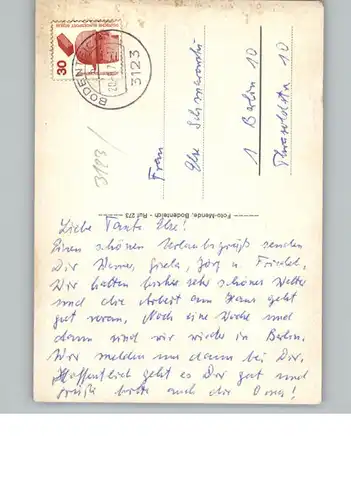 30
DEUTSCHE BUNDESPOST
BODENTEICH
3123
3123/
Frau
Else
1 Berlin 10
10
Foto-Mende, Bodenteich - Ruf 273
Liebe Tante Else!
Einen schönen Urlaubsgruß senden
Dir Werner, Gisela, Jörg u. Friedel.
Wir hatten bisher sehr schönes Wetter
und die Arbeit am Haus geht
gut voran. Noch eine Woche und
dann sind wir wieder in Berlin.
Wir melden uns dann bei Dir.
Hoffentlich geht es Dir gut und
grüße bitte auch die Oma!